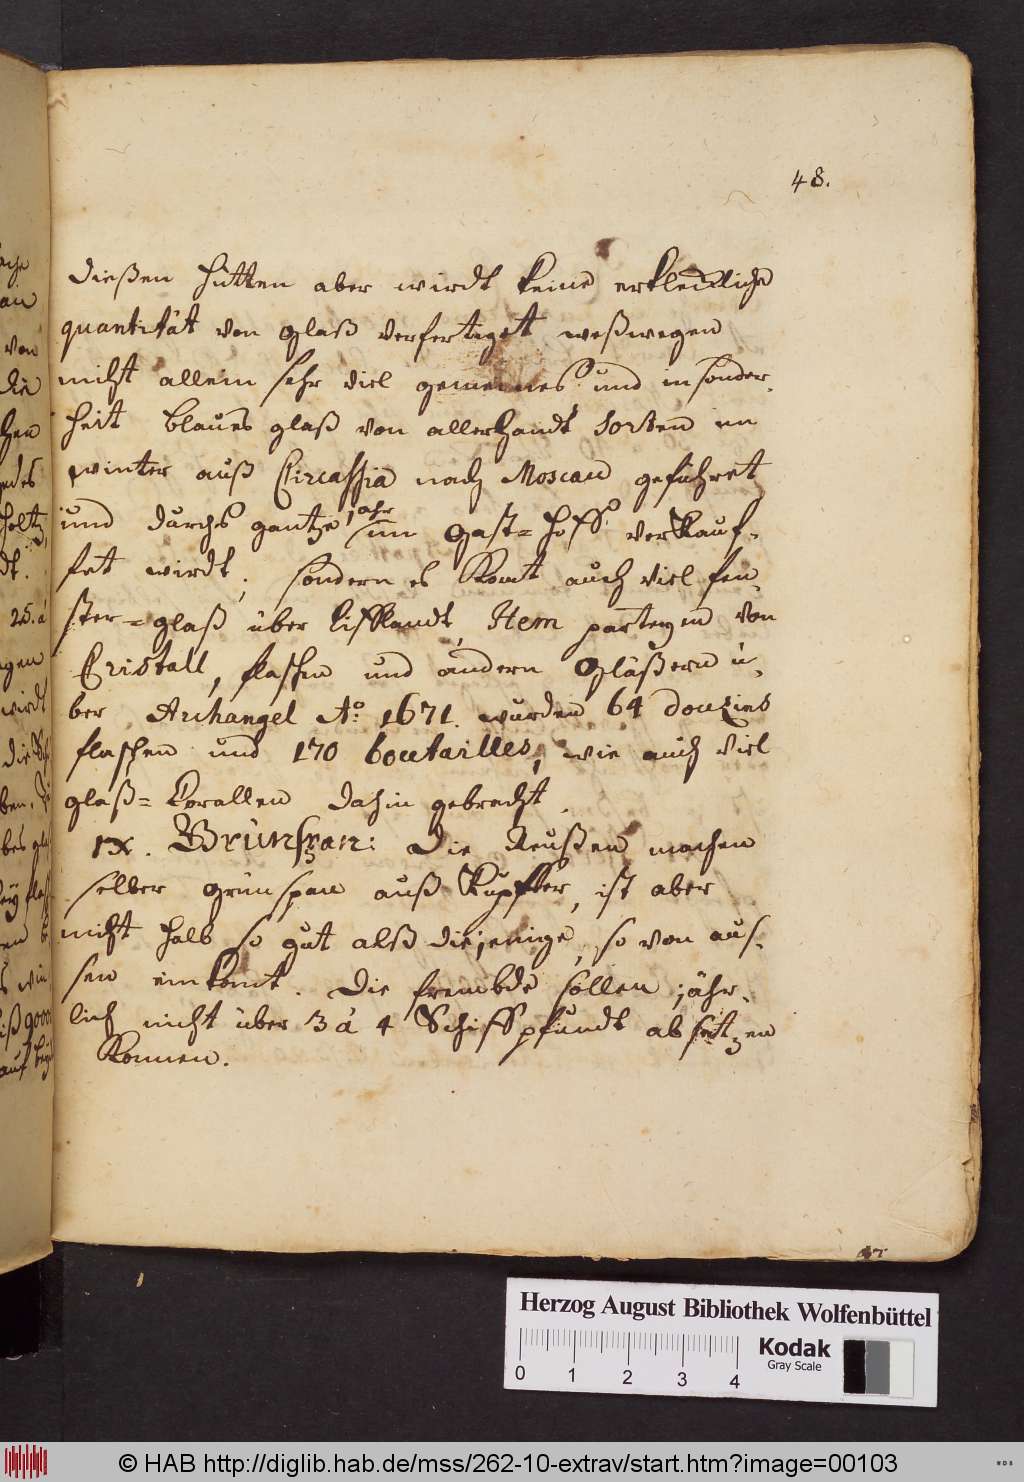 48.
dießen Hütten aber wirdt keine erkleckliche
quantität von Glaß verfertiget weßwegen
nicht allein sehr viel gemeines und insonder-
heit blaues glaß von allerhandt sorten im
winter auß Circassia nach Moscau geführet
und durchs gantze jahr im Gast=Hoff verkauf-
fet wirdt, sondern es komt auch viel fen-
ster=glaß über Liffland, Item parteyen von
Cristall, flaschen und andern Gläßern ü-
ber Archangel Aō: 1671. wurden 64 douzins
flaschen und 170 boutailles, wie auch viel
glaß=Corallen dahin gebracht.
IX. Grünspan: Die Reußen machen
selber grünspan auß Kupffer, ist aber
nicht halb so gut alß diejenige, so von aus-
sen einkomt. Die frembde sollen jähr-
lich nicht über 3 à 4 Schiffpfundt absetzen
können.
von
die
25. à
wirdt
Herzog August Bibliothek Wolfenbüttel
0 1 2 3 4
Kodak
Gray Scale
© HAB http://diglib.hab.de/mss/262-10-extrav/start.htm?image=00103